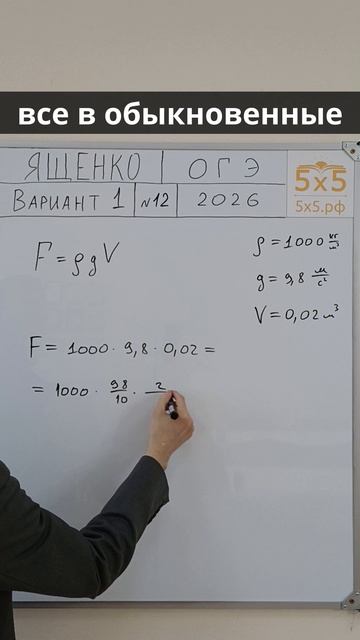 все в обыкновенные
ЯЩЕНКО ОГЭ
ВАРИАНТ 1 №12 2026
5×5
5x5.рф
F = ρgV
ρ = 1000 кг/м³
g = 9,8 м/с²
V = 0,02 м³
F = 1000 · 9,8 · 0,02 =
= 1000 · 98/10 · 2/